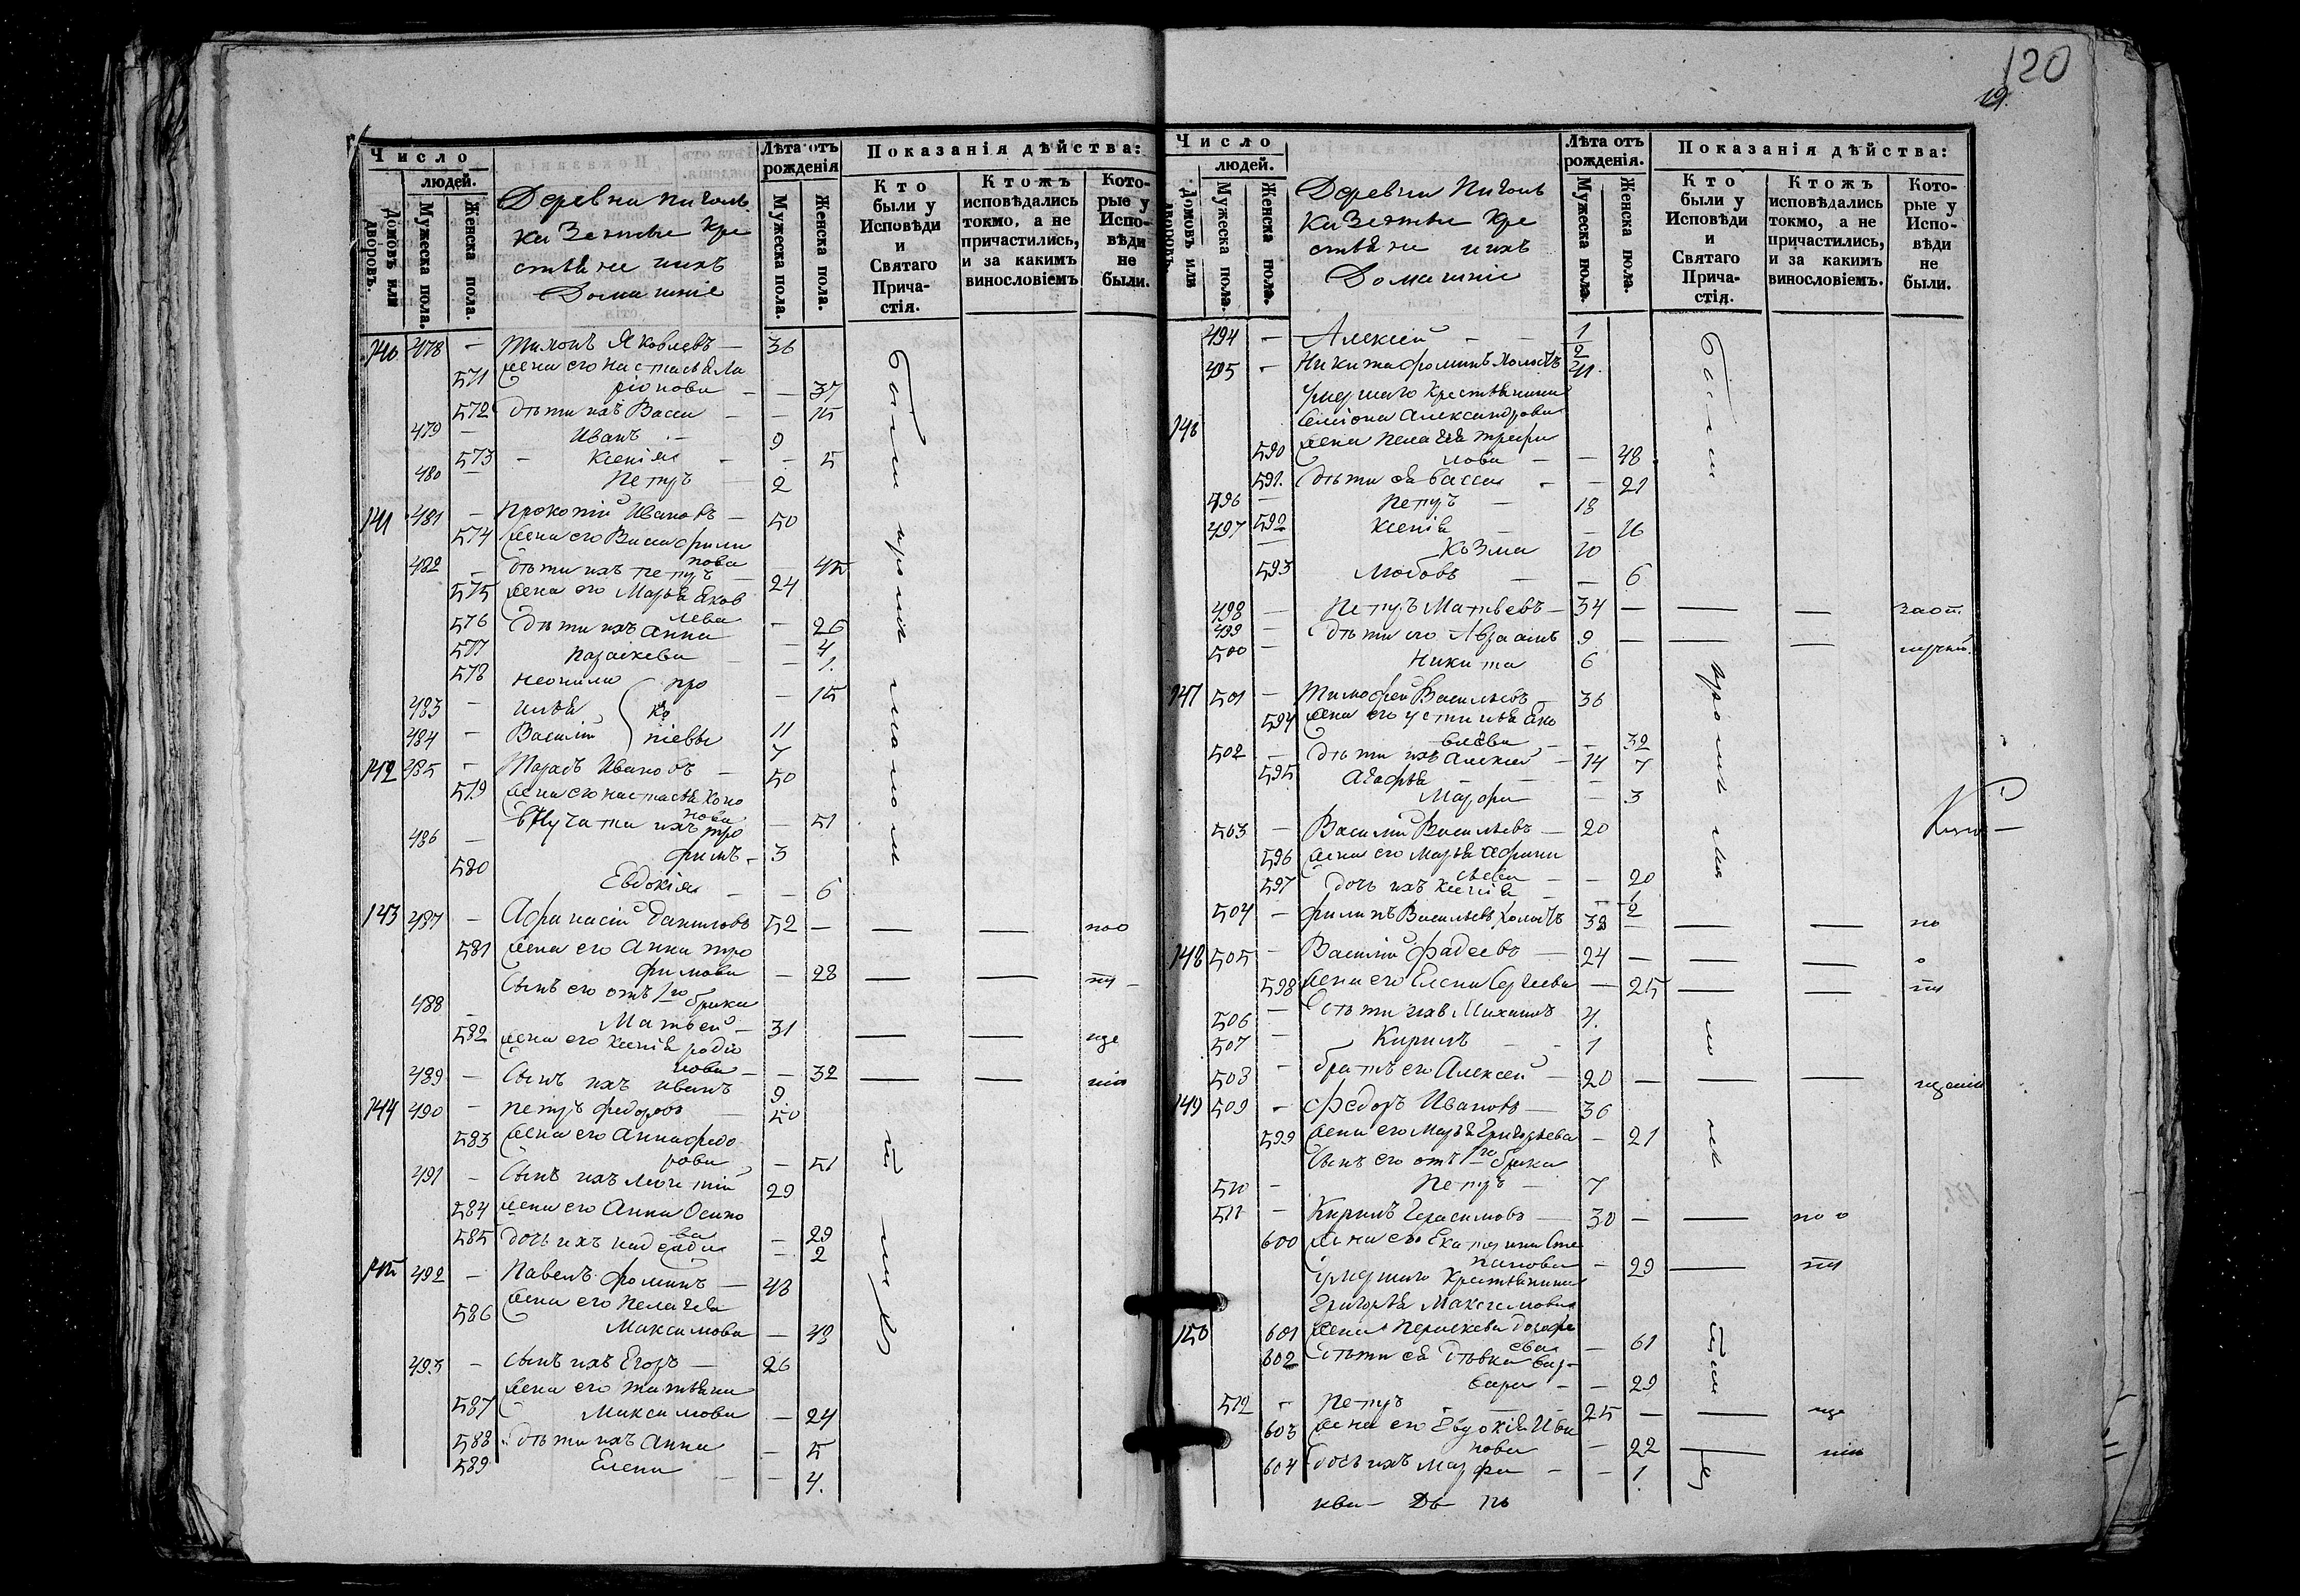 120
19.
Число
людей.
Домовъ или дворовъ.
Мужеска пола.
Женска пола.
Деревни
Казенные Кре
стьяне ихъ
Домашніе
Лѣта отъ рожденія
Мужеска пола.
Женска пола.
Показанія дѣйства:
Кто были у Исповѣди и Святаго Причастія.
Ктожъ исповѣдались токмо, а не причастились, и за какимъ винословіемъ
Которые у Исповѣди не были.
140 478 – Тихонъ Яковлевъ – 36
571 жена его Настасья Ла
ріонова – – 37
572 дѣти ихъ Васса – – 15
479 – Иванъ – 9
573 – Ксенія – – 5
480 – Петръ 2
141 481 – Прокопій Ивановъ – 50
574 жена его Васса Фили
пова – 45
482 – дѣти ихъ Петръ – 24
575 жена его Марья Яков
лева – 26
576 дѣти ихъ Анна – 4
577 Параскева – 1.
578 Неонила – 15
483 – Илья 11
484 – Василій 7
про
ко
піевы
142 485 – Тарасъ Ивановъ – 50
579 жена его Настасья Коно
нова – 51
486 – внучата ихъ Тро
фимъ – 3
580 Евдокія – – 6
143 487 – Афанасій Даниловъ 52 – — —
581 жена его Анна Тро
фимова – 28 — —
488 – Сынъ его отъ 1го брака
Матвей – 31 — —
582 жена его Ксенія Родіо
нова – – 32 — —
489 – Сынъ ихъ Иванъ 9
144 490 – Петръ Федоровъ 50
583 жена его Анна Федо
рова – 51
491 – Сынъ ихъ 29
584 жена его Анна Осипо
ва – 29
585 дочь ихъ Надежда – 2
145 492 – Павелъ Фоминъ – 48
586 жена его Пелагея
Максимова – 43
493 – Сынъ ихъ Егоръ – 26
587 жена его Татьяна
Максимова – 24
588 дѣти ихъ Анна – 5
589 Елена – – 4.
были
Число
людей.
Домовъ или дворовъ.
Мужеска пола.
Женска пола.
Деревни
Казенные Кре
стьяне ихъ
Домашніе
Лѣта отъ рожденія.
Мужеска пола.
Женска пола.
Показанія дѣйства:
Кто были у Исповѣди и Святаго Причастія.
Ктожъ исповѣдались токмо, а не причастились, и за какимъ винословіемъ.
Которые у Исповѣди не были.
494 – Алексій – – 1/2
495 – Никита Фоминъ Холостъ 41.
Умершаго Крестьянина
Семіона Александрова
146 590 жена Пелагея Трофи
мова – – 48
591. дѣти ея Васса – – 21
496 – Петръ – 18
497 592 Ксенія – – 16
Козма 10
593 Любовь – – 6
498 – Петръ Матвѣевъ – 34 – — —
499 – дѣти его Авраамъ 9 – — —
500 – Никита 6
147 501 – Тимофей Васильевъ – 36
594 жена его Устинья Яко
влева – – 32
502 – дѣти ихъ Алексей – 14
595 Агафья – – 7
Марфа – 3
503 – Василій Васильевъ – 20
596 жена его Марья Афана
сьева – – 20
597 дочь ихъ Ксенія – – 1/2
504 – Филипъ Васильевъ Холостъ 38 – — —
148 505 – Василій Фадеевъ – 24 – — —
598 жена его Елена Сергеева – 25 — —
506 – дѣти ихъ Михаилъ 4.
507 – Кирилъ – – 1
508 – братъ его Алексей – 20 – — —
149 509 – Федоръ Ивановъ – 36
599 жена его Марья Григорьева – 21
Сынъ его отъ 1го брака
510 – Петръ – 7
511 – Кирилъ Герасимовъ – 30 – —
600 жена его Екатерина Сте
панова – 29 —
Умершаго Крестьянина
Григорья Максимова
150 601 жена Параскева Дорофе
ева – 61
602 дѣти ея дѣвка Вар-
вара – – 29
512 – Петръ – – 25 – —
603 жена его Евдокія Ива
нова – 22 —
604 дочь ихъ Марфа – – 1.
были